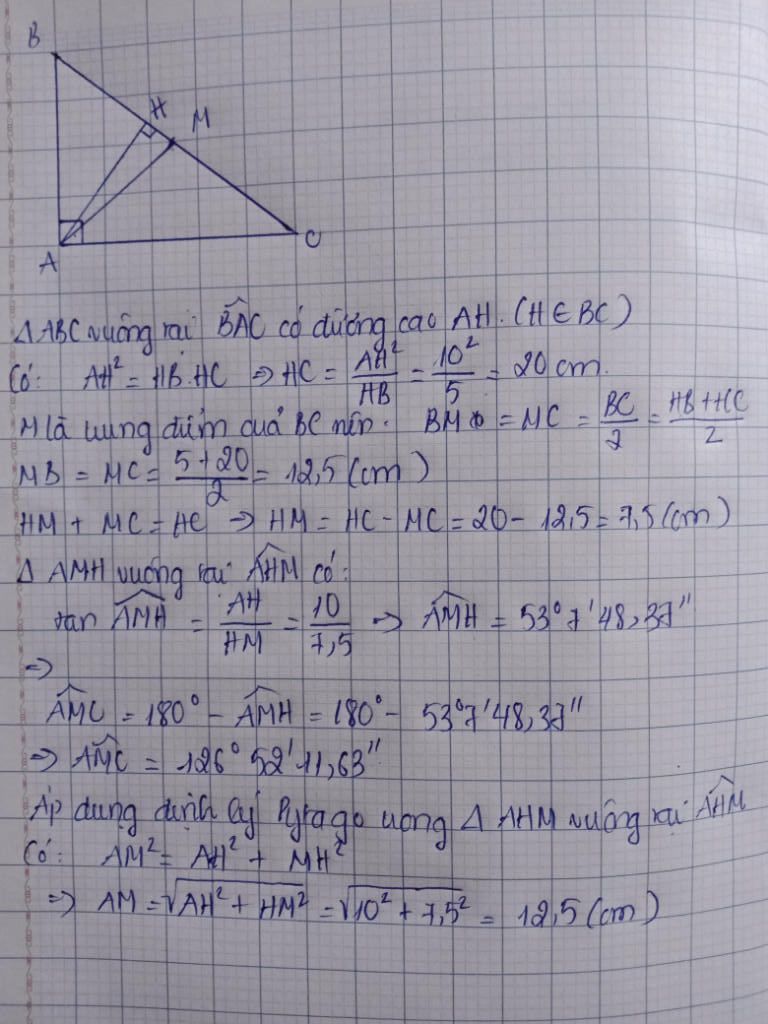 B
H
M
A
C
Δ ABC vuông tại BÂC có đường cao AH. (H ∈ BC)
Có: AH² = HB.HC ⇒ HC = AH²/HB = 10²/5 = 20 cm.
M là trung điểm của BC nên. BM = MC = BC/2 = HB + HC/2
MB = MC = 5 + 20/2 = 12,5 (cm)
HM + MC = HC ⇒ HM = HC - MC = 20 - 12,5 = 7,5 (cm)
Δ AMH vuông tại AĤM có:
tan AM̂H = AH/HM = 10/7,5 ⇒ AM̂H = 53°7'48,37''
⇒
AM̂C = 180° - AM̂H = 180° - 53°7'48,37''
⇒ AM̂C = 126°52'11,63''
Áp dụng định lý Pytago trong Δ AHM vuông tại AĤM
Có: AM² = AH² + MH²
⇒ AM = √(AH² + HM²) = √(10² + 7,5²) = 12,5 (cm)